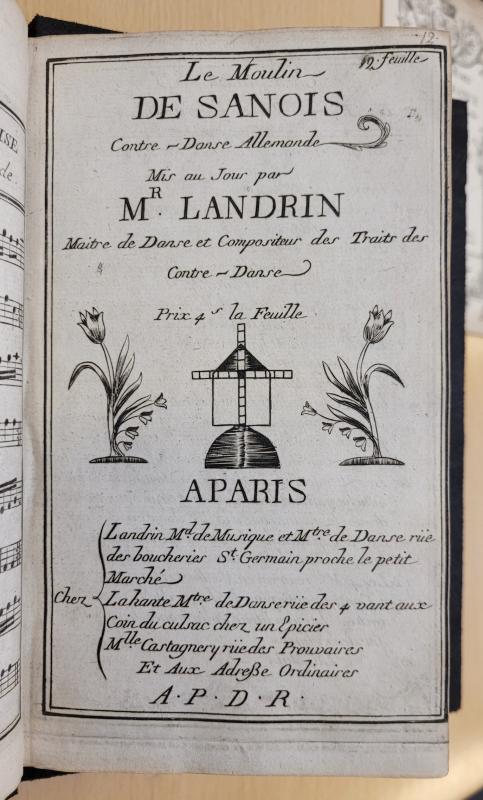 12.
19. feuille
Le Moulin
DE SANOIS
Contre-Danse Allemande
Mis au Jour par
MR. LANDRIN
Maitre de Danse et Compositeur des Traits des
Contre-Danse
Prix 4s la Feuille
APARIS
Chez
Landrin Md. de Musique et Mtre de Danse rüe
des boucheries St. Germain proche le petit
Marché
Lahante Mtre de Danse rüe des 4 vant aux
Coin du culsac chez un Epicier
Mlle Castagnery rüe des Prouvaires
Et Aux Adreße Ordinaires
A.P.D.R.
ISE
de.